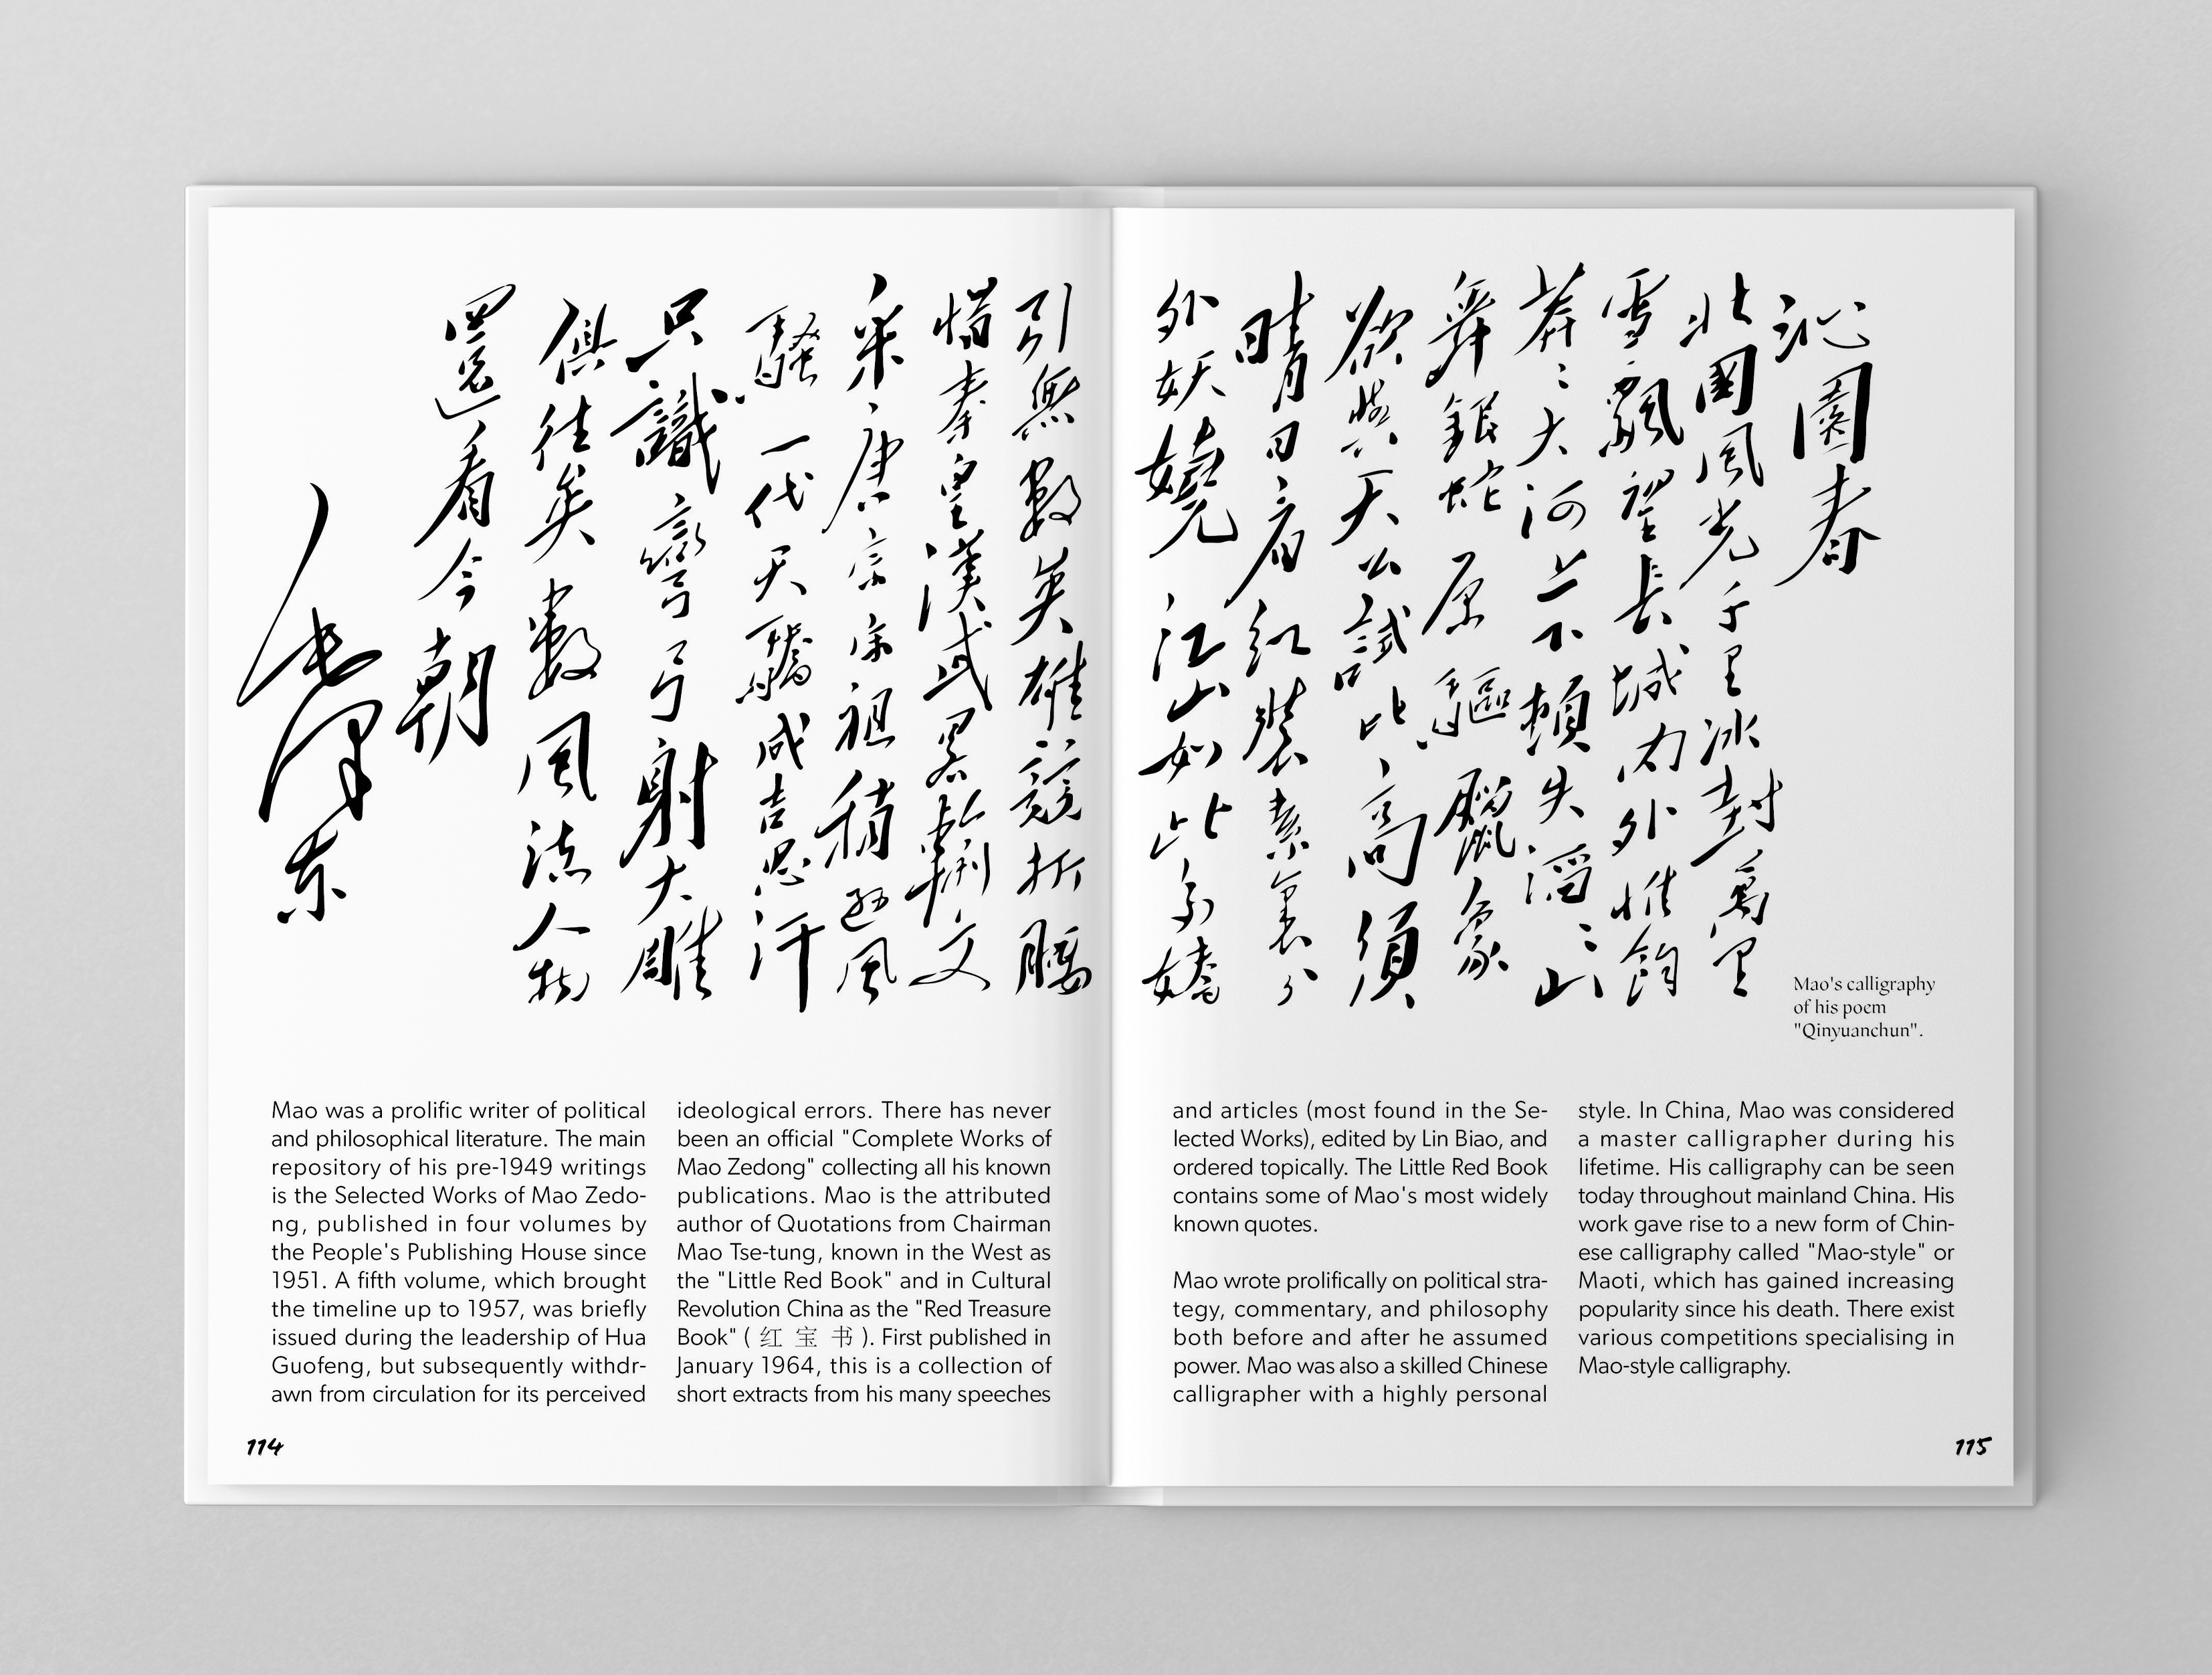 沁園春
北國風光千里冰封萬里
雪飄望長城內外惟餘
莽〻大河上下頓失滔〻山
舞銀蛇原驅臘象
欲與天公試比高須
晴日看紅裝素裹分
外妖嬈江山如此多嬌
引無數英雄競折腰
惜秦皇漢武略輸文
采唐宗宋祖稍遜風
騷一代天驕成吉思汗
只識彎弓射大雕
俱往矣數風流人物
還看今朝
毛澤东
Mao's calligraphy
of his poem
"Qinyuanchun".
Mao was a prolific writer of political
and philosophical literature. The main
repository of his pre-1949 writings
is the Selected Works of Mao Zedo-
ng, published in four volumes by
the People's Publishing House since
1951. A fifth volume, which brought
the timeline up to 1957, was briefly
issued during the leadership of Hua
Guofeng, but subsequently withdr-
awn from circulation for its perceived
ideological errors. There has never
been an official "Complete Works of
Mao Zedong" collecting all his known
publications. Mao is the attributed
author of Quotations from Chairman
Mao Tse-tung, known in the West as
the "Little Red Book" and in Cultural
Revolution China as the "Red Treasure
Book" ( 红 宝 书 ). First published in
January 1964, this is a collection of
short extracts from his many speeches
114
and articles (most found in the Se-
lected Works), edited by Lin Biao, and
ordered topically. The Little Red Book
contains some of Mao's most widely
known quotes.
Mao wrote prolifically on political stra-
tegy, commentary, and philosophy
both before and after he assumed
power. Mao was also a skilled Chinese
calligrapher with a highly personal
style. In China, Mao was considered
a master calligrapher during his
lifetime. His calligraphy can be seen
today throughout mainland China. His
work gave rise to a new form of Chin-
ese calligraphy called "Mao-style" or
Maoti, which has gained increasing
popularity since his death. There exist
various competitions specialising in
Mao-style calligraphy.
115